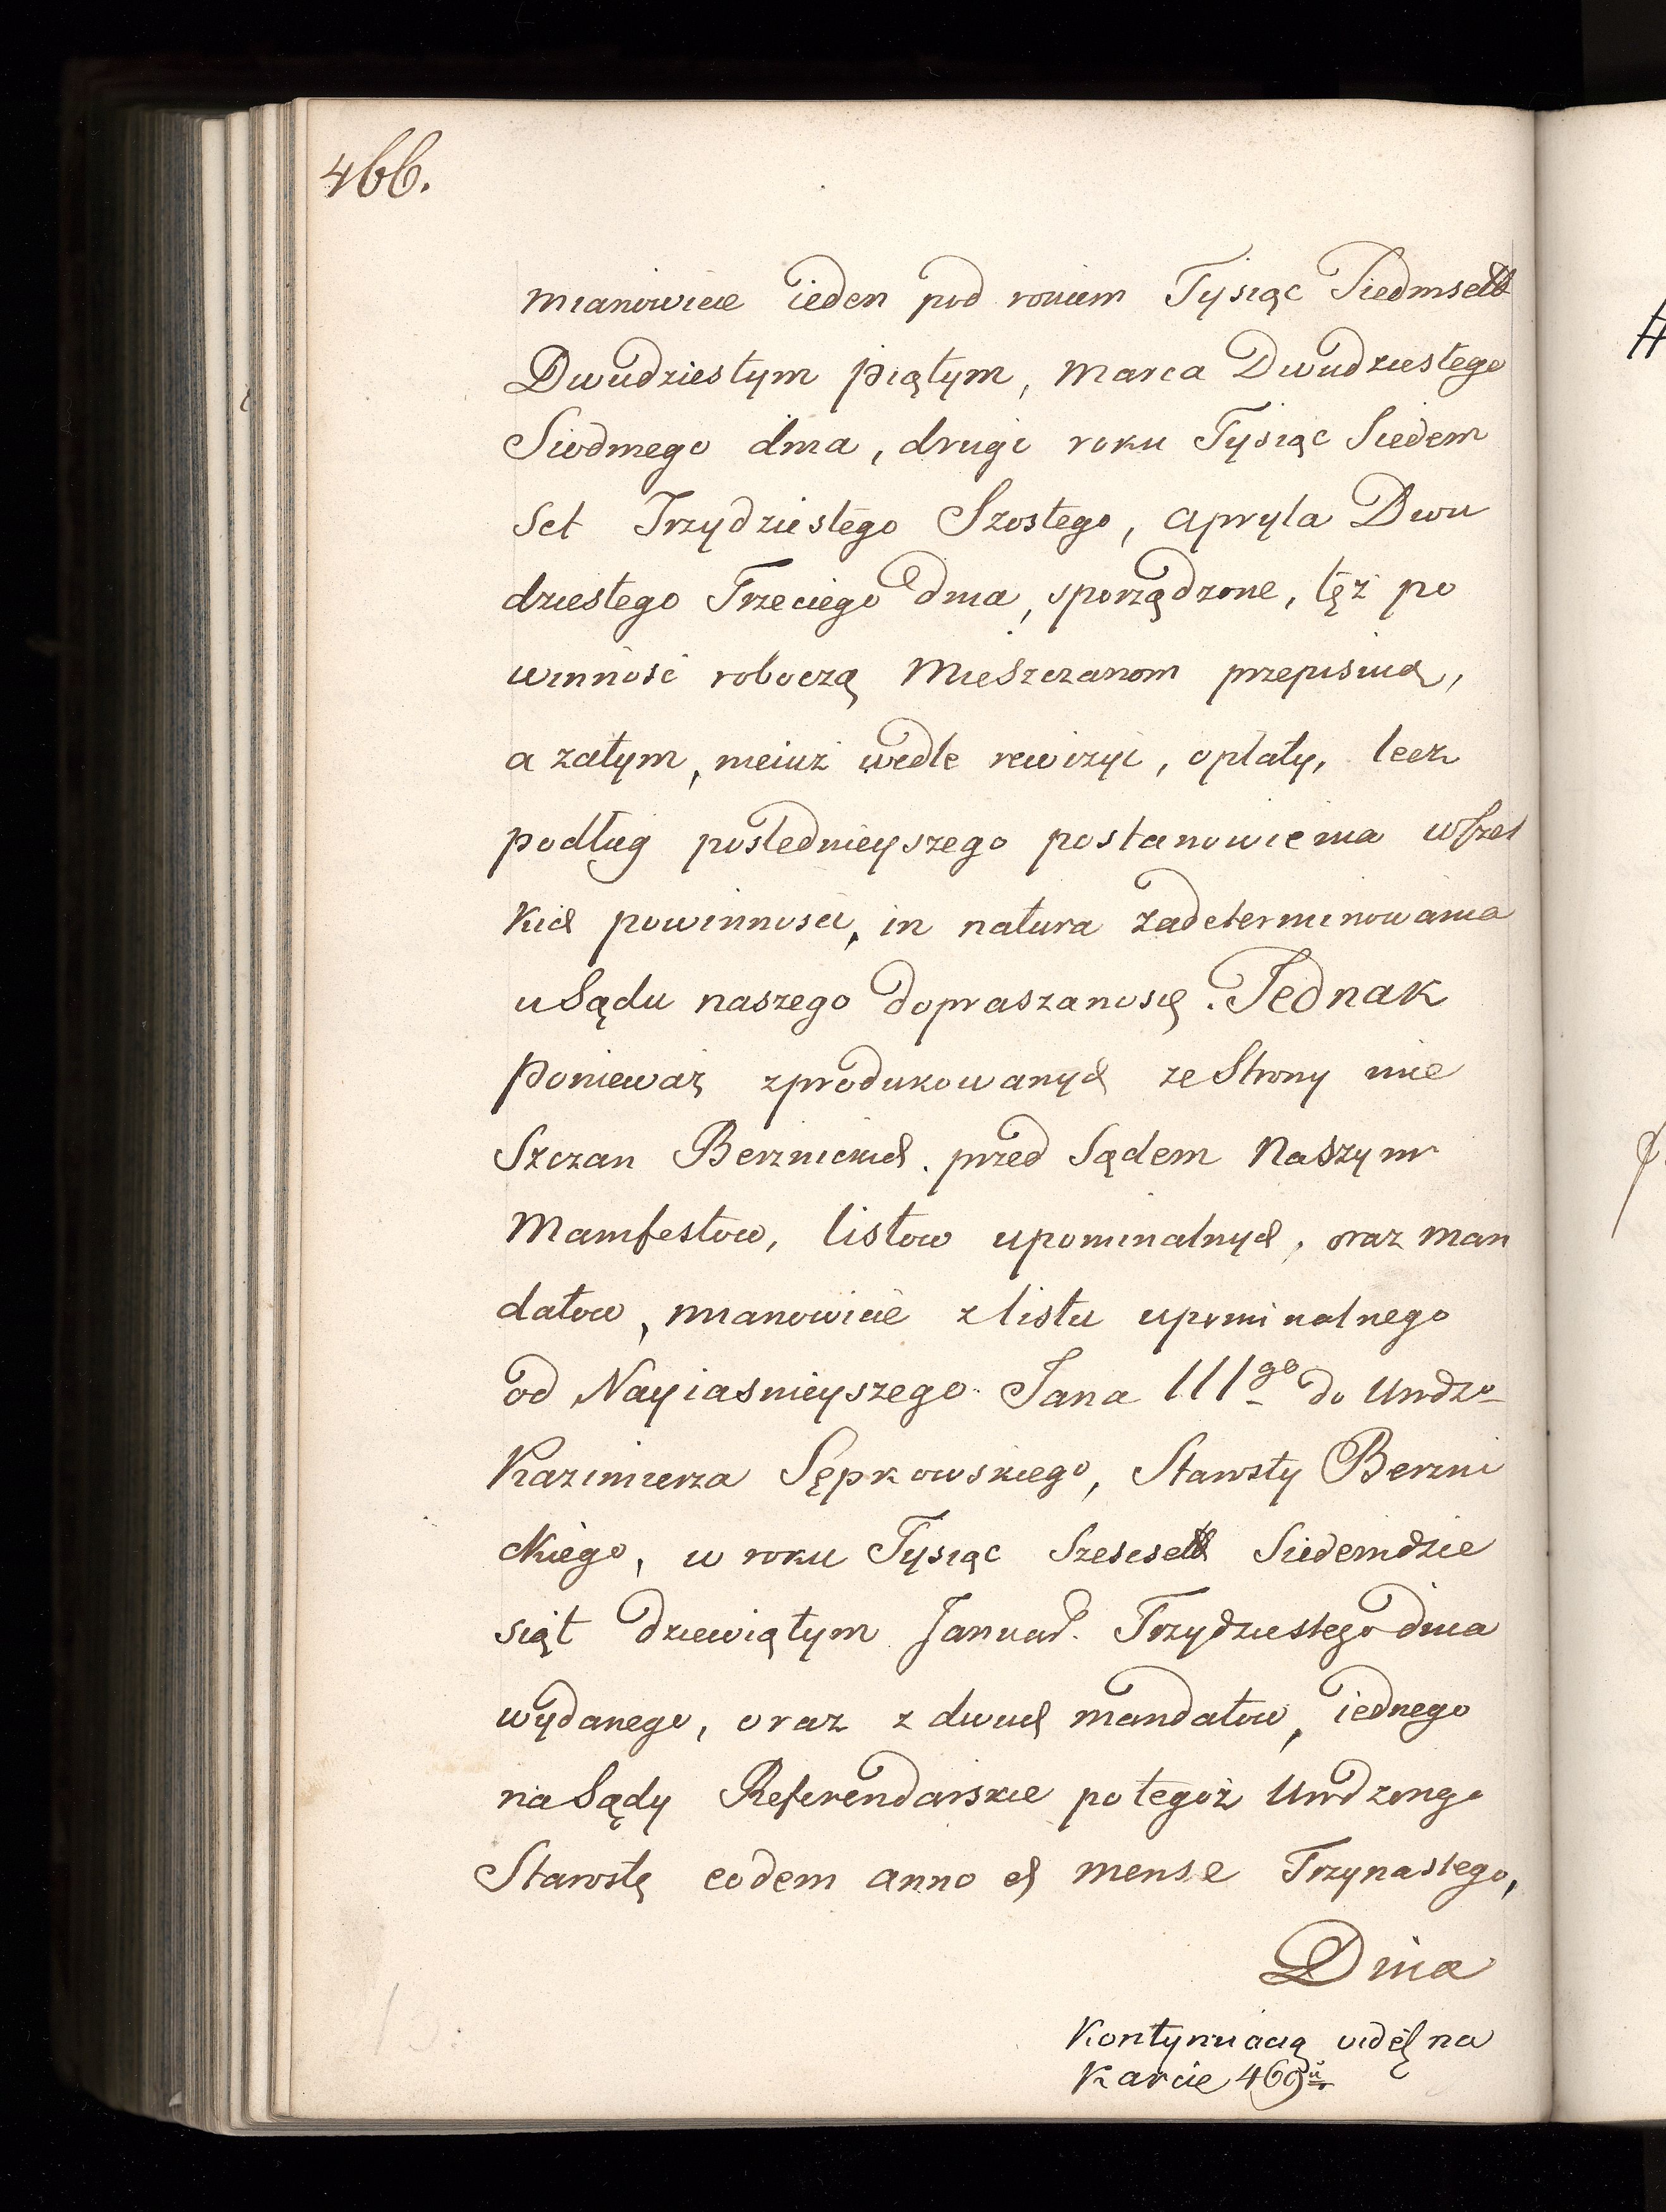 466.
mianowicie ieden pod rokiem Tysiąc Siedmset
Dwudziestym piątym, marca Dwudziestego
Siodmego dnia, drugi roku Tysiąc Siedem
set Trzydziestego Szostego, apryla Dwu
dziestego Trzeciego dnia, sporządzone, tęż po
winność roboczą Mieszczanom przepisuią,
a zatym, nieiuż wedle rewizyi, opłaty, lecz
podług poslednieyszego postanowienia wszel
kich powinnosci, in natura zadeterminowania
u Sądu naszego dopraszanosię. Jednak
ponieważ zprodukowanych ze Strony mie
Szczan Berznickich przed Sądem Naszym
Manifestow, listow upominalnych, oraz man
datow, mianowicie z listu upominalnego
od Nayiasnieyszego Jana III go do Urodzo-
Kazimierza Sępkowskiego, Starosty Berzni
ckiego, w roku Tysiąc Szescset Siedemdzie
siąt dziewiątym Januar. Trzydziestego dnia
wydanego, oraz z dwuch mandatow, iednego
na Sądy Referendarskie po tegoż Urodzongo
Starostę eodem anno et mense Trzynastego,
Dnia
Kontynuacią vide na
Karcie 469